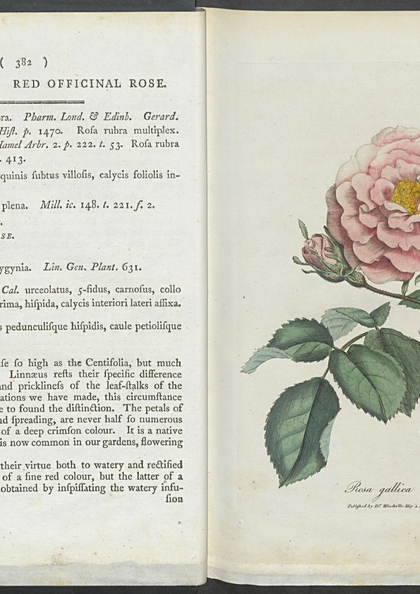 ( 382 )
RED OFFICINAL ROSE.
Pharm. Lond. & Edinb. Gerard.
Hist. p. 1470. Rosa rubra multiplex.
Arbr. 2. p. 222. t. 53. Rosa rubra
413.
quinis subtus villosis, calycis foliolis in-
plena. Mill. ic. 148. t. 221. f. 2.
Lin. Gen. Plant. 631.
Cal. urceolatus, 5-fidus, carnosus, collo
hispida, calycis interiori lateri affixa.
pedunculisque hispidis, caule petiolisque
so high as the Centifolia, but much
Linnæus rests their specific difference
and prickliness of the leaf-stalks of the
we have made, this circumstance
to found the distinction. The petals of
spreading, are never half so numerous
of a deep crimson colour. It is a native
is now common in our gardens, flowering
their virtue both to watery and rectified
of a fine red colour, but the latter of a
obtained by inspissating the watery infu-
sion
Rosa gallica
Published by Dr. Woodville